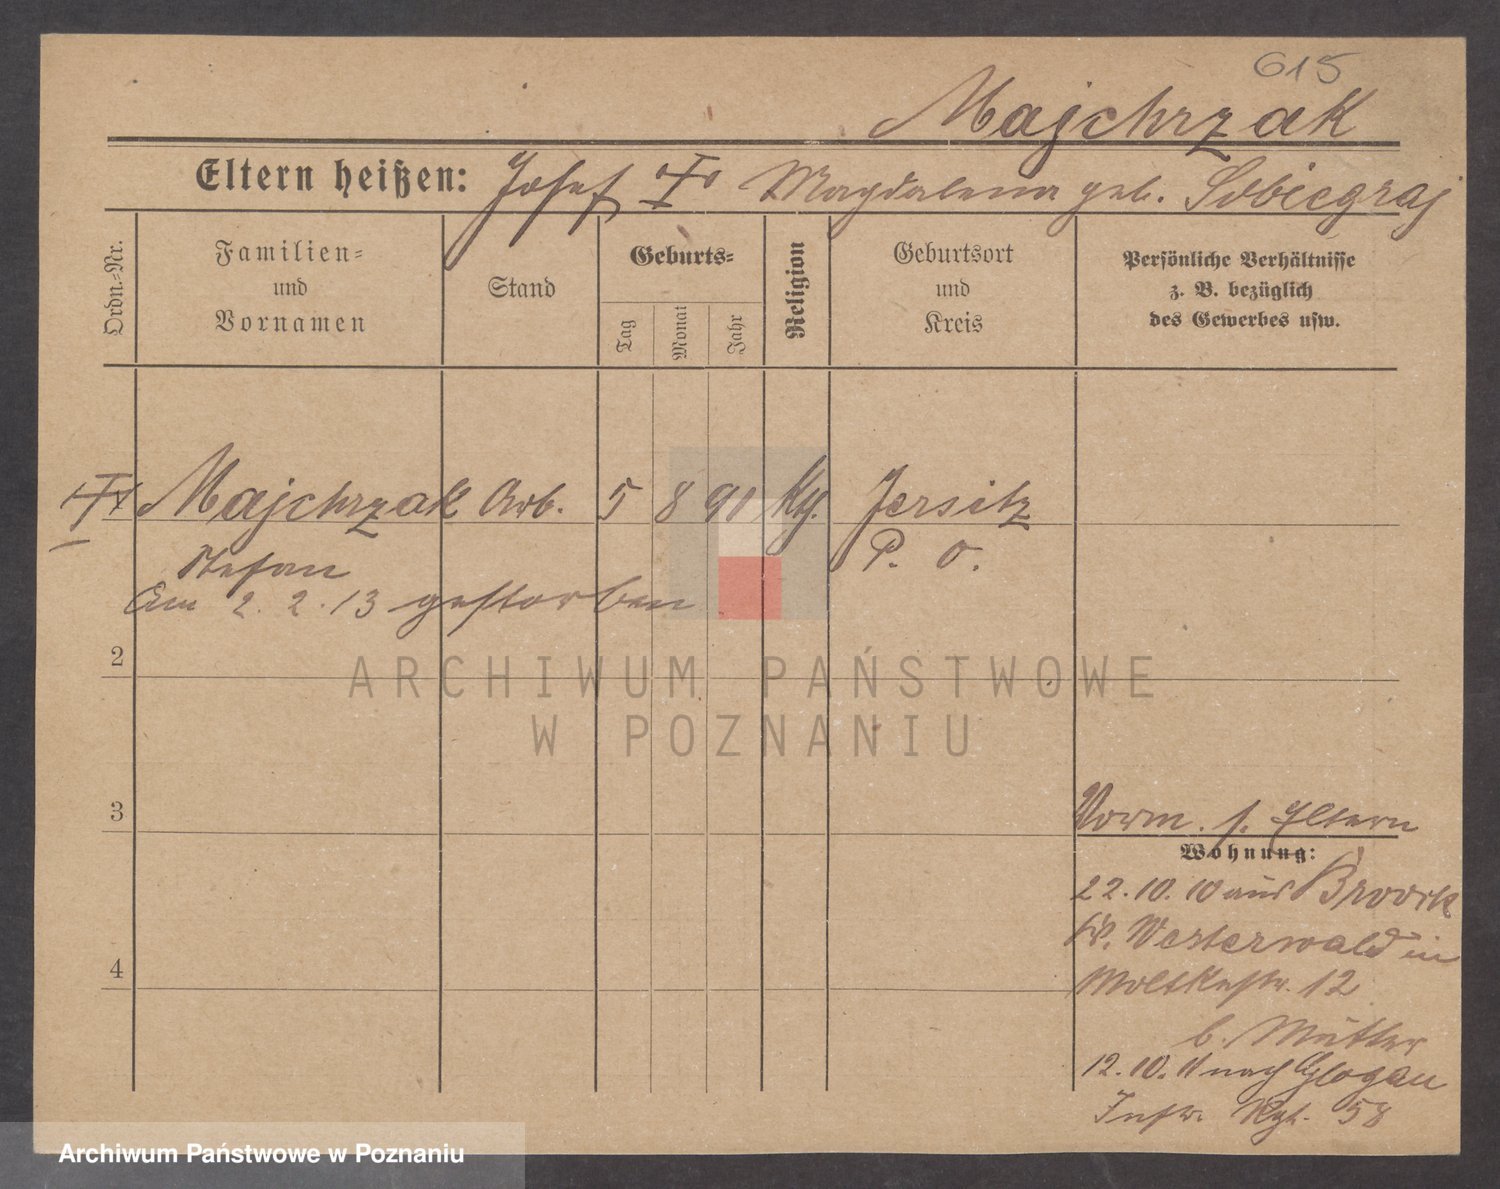 615
Majchrzak
Eltern heißen: Josef Magdalena geb. Sobiegraj
Ordn.-Nr.
Familien-
und
Vornamen
Stand
Geburts-
Tag
Monat
Jahr
Religion
Geburtsort
und
Kreis
Persönliche Verhältnisse
z. B. bezüglich
des Gewerbes usw.
Majchrzak Arb. 5 8 91 Kth. Jersitz
Stefan P. O.
Am 2. 2. 13 gestorben
2
ARCHIWUM PAŃSTWOWE
W POZNANIU
3
Vorm. s. Eltern
Wohnung:
22. 10. 10 aus
Kr. Westerwald in
4
Moltkestr. 12
b. Mutter
12. 10. 11 nach Glogau
Inftr. Rgt. 58
Archiwum Państwowe w Poznaniu